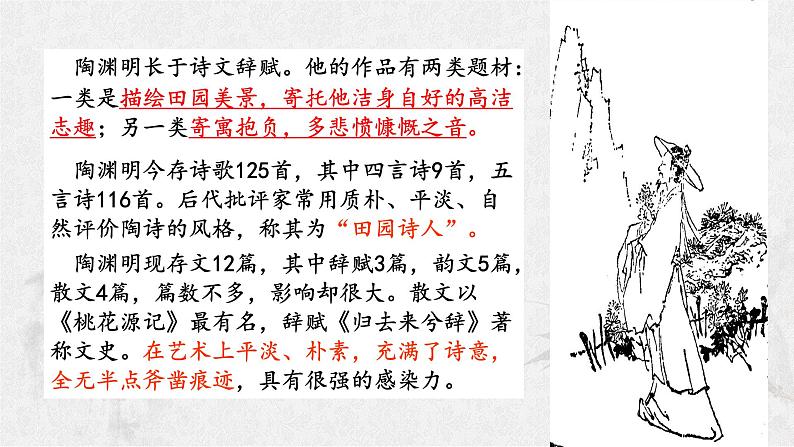 陶渊明长于诗文辞赋。他的作品有两类题材：
一类是描绘田园美景，寄托他洁身自好的高洁
志趣；另一类寄寓抱负，多悲愤慷慨之音。
陶渊明今存诗歌125首，其中四言诗9首，五
言诗116首。后代批评家常用质朴、平淡、自
然评价陶诗的风格，称其为“田园诗人”。
陶渊明现存文12篇，其中辞赋3篇，韵文5篇，
散文4篇，篇数不多，影响却很大。散文以
《桃花源记》最有名，辞赋《归去来兮辞》著
称文史。在艺术上平淡、朴素，充满了诗意，
全无半点斧凿痕迹，具有很强的感染力。